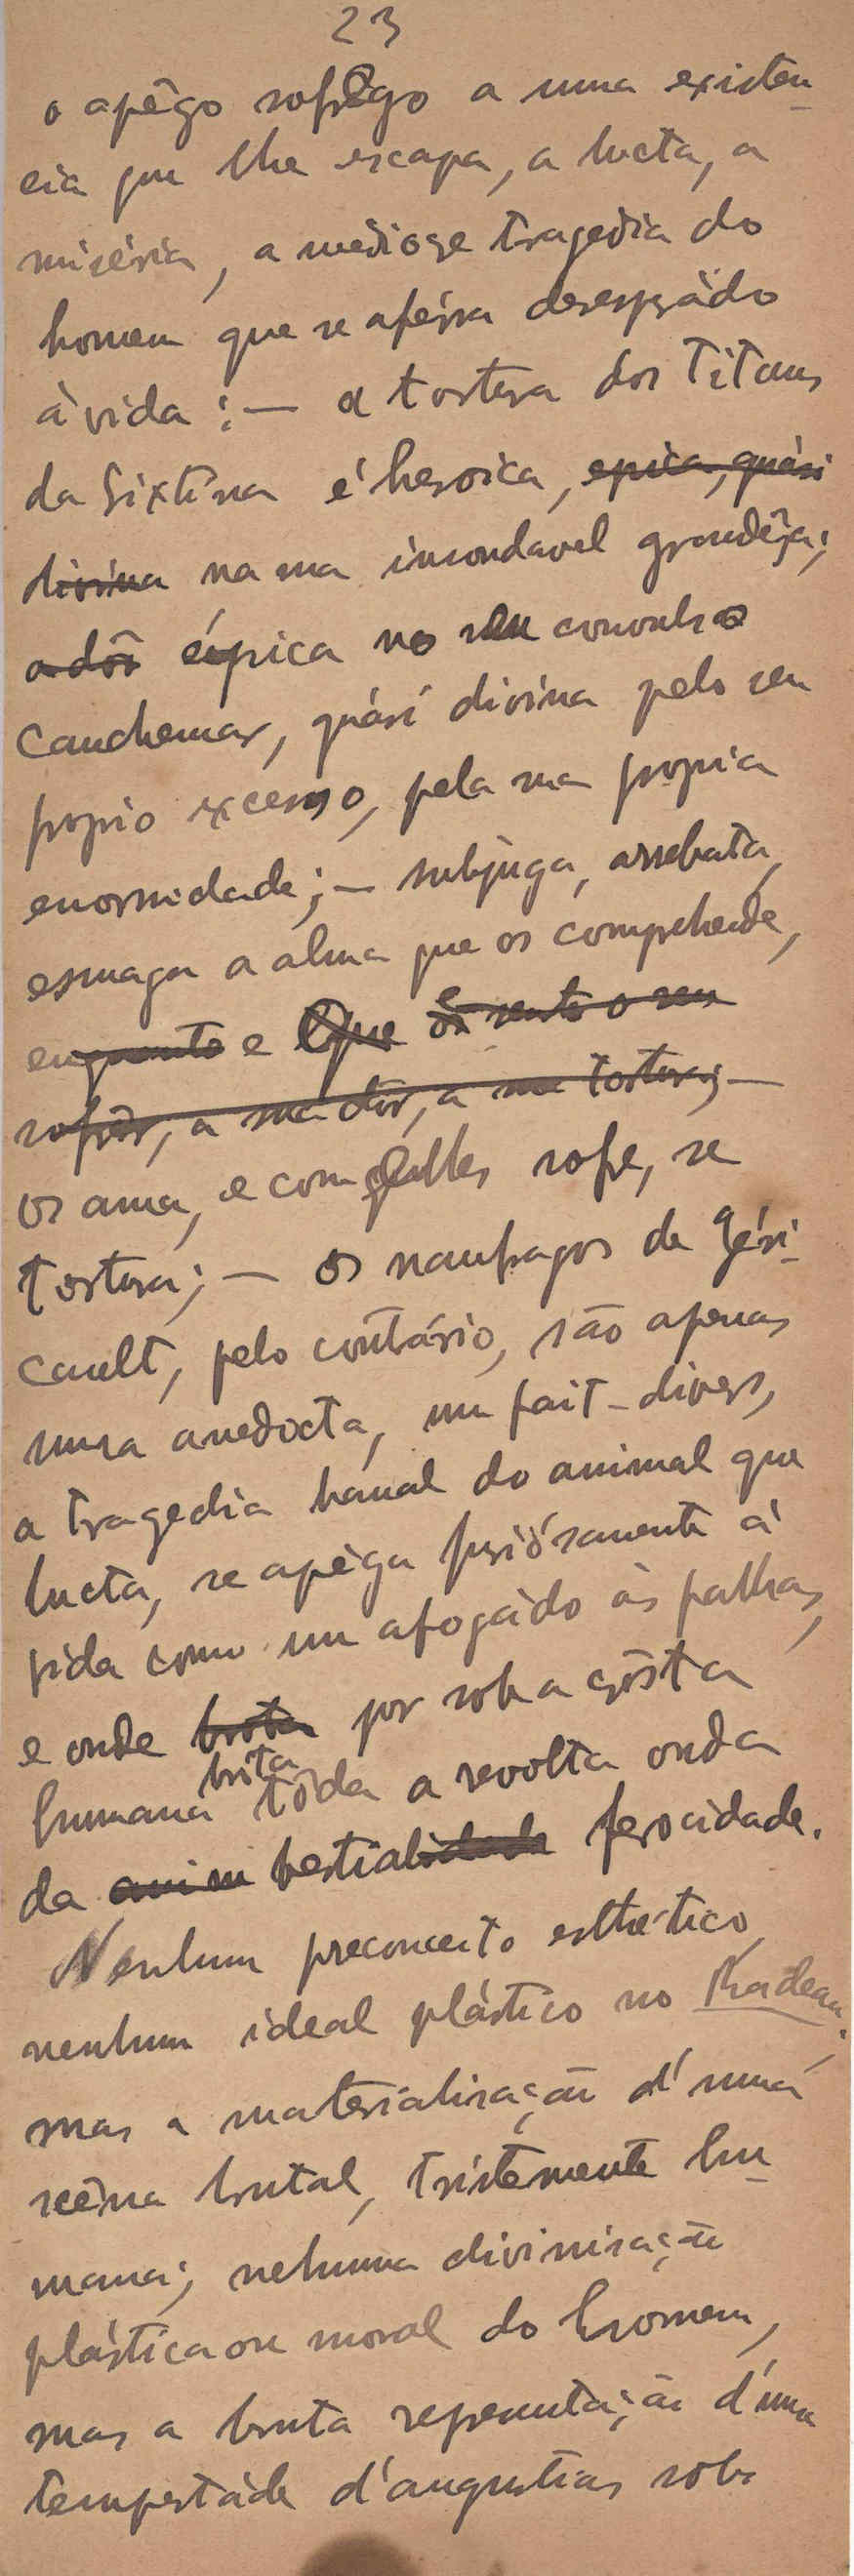 23
o apêgo sofrêgo a uma existen-
cia que lhe escapa, a lucta, a
miséria, a mediocre tragedia do
homem que se aférra desesperádo
á vida : — a tortura dos Titans
da Sixtina é heroica, epica, quási
divina na sua insondavel grandêza;
a dôr épica no seu convulso
cauchemar, quási divina pelo seu
proprio excesso, pela sua propria
enormidade; — subjuga, arrebata,
esmaga a alma que os comprehende,
emquanto e que os sente o seu
sofrêr, a sua dôr, a sua tortura; —
os ama, e com elles sofre, se
tortura; — os naufragos de Géri-
cault, pelo contrário, são apenas
uma anedocta, um fait-divers,
a tragedia banal do animal que
lucta, se apéga furiósamente á
vida como um afogádo ás palhas,
e onde brota por sob a crósta
humana brita tôda a revolta onda
da anim bestialidade ferocidade.
Nenhum preconceito esthetico,
nenhum ideal plástico no Radeau;
mas a materialisação d'uma
scêna brutal, tristemente hu-
mana; nehuma divinisação
plástica ou moral do homem,
mas a bruta representação d'uma
tempestáde d'angustias sob